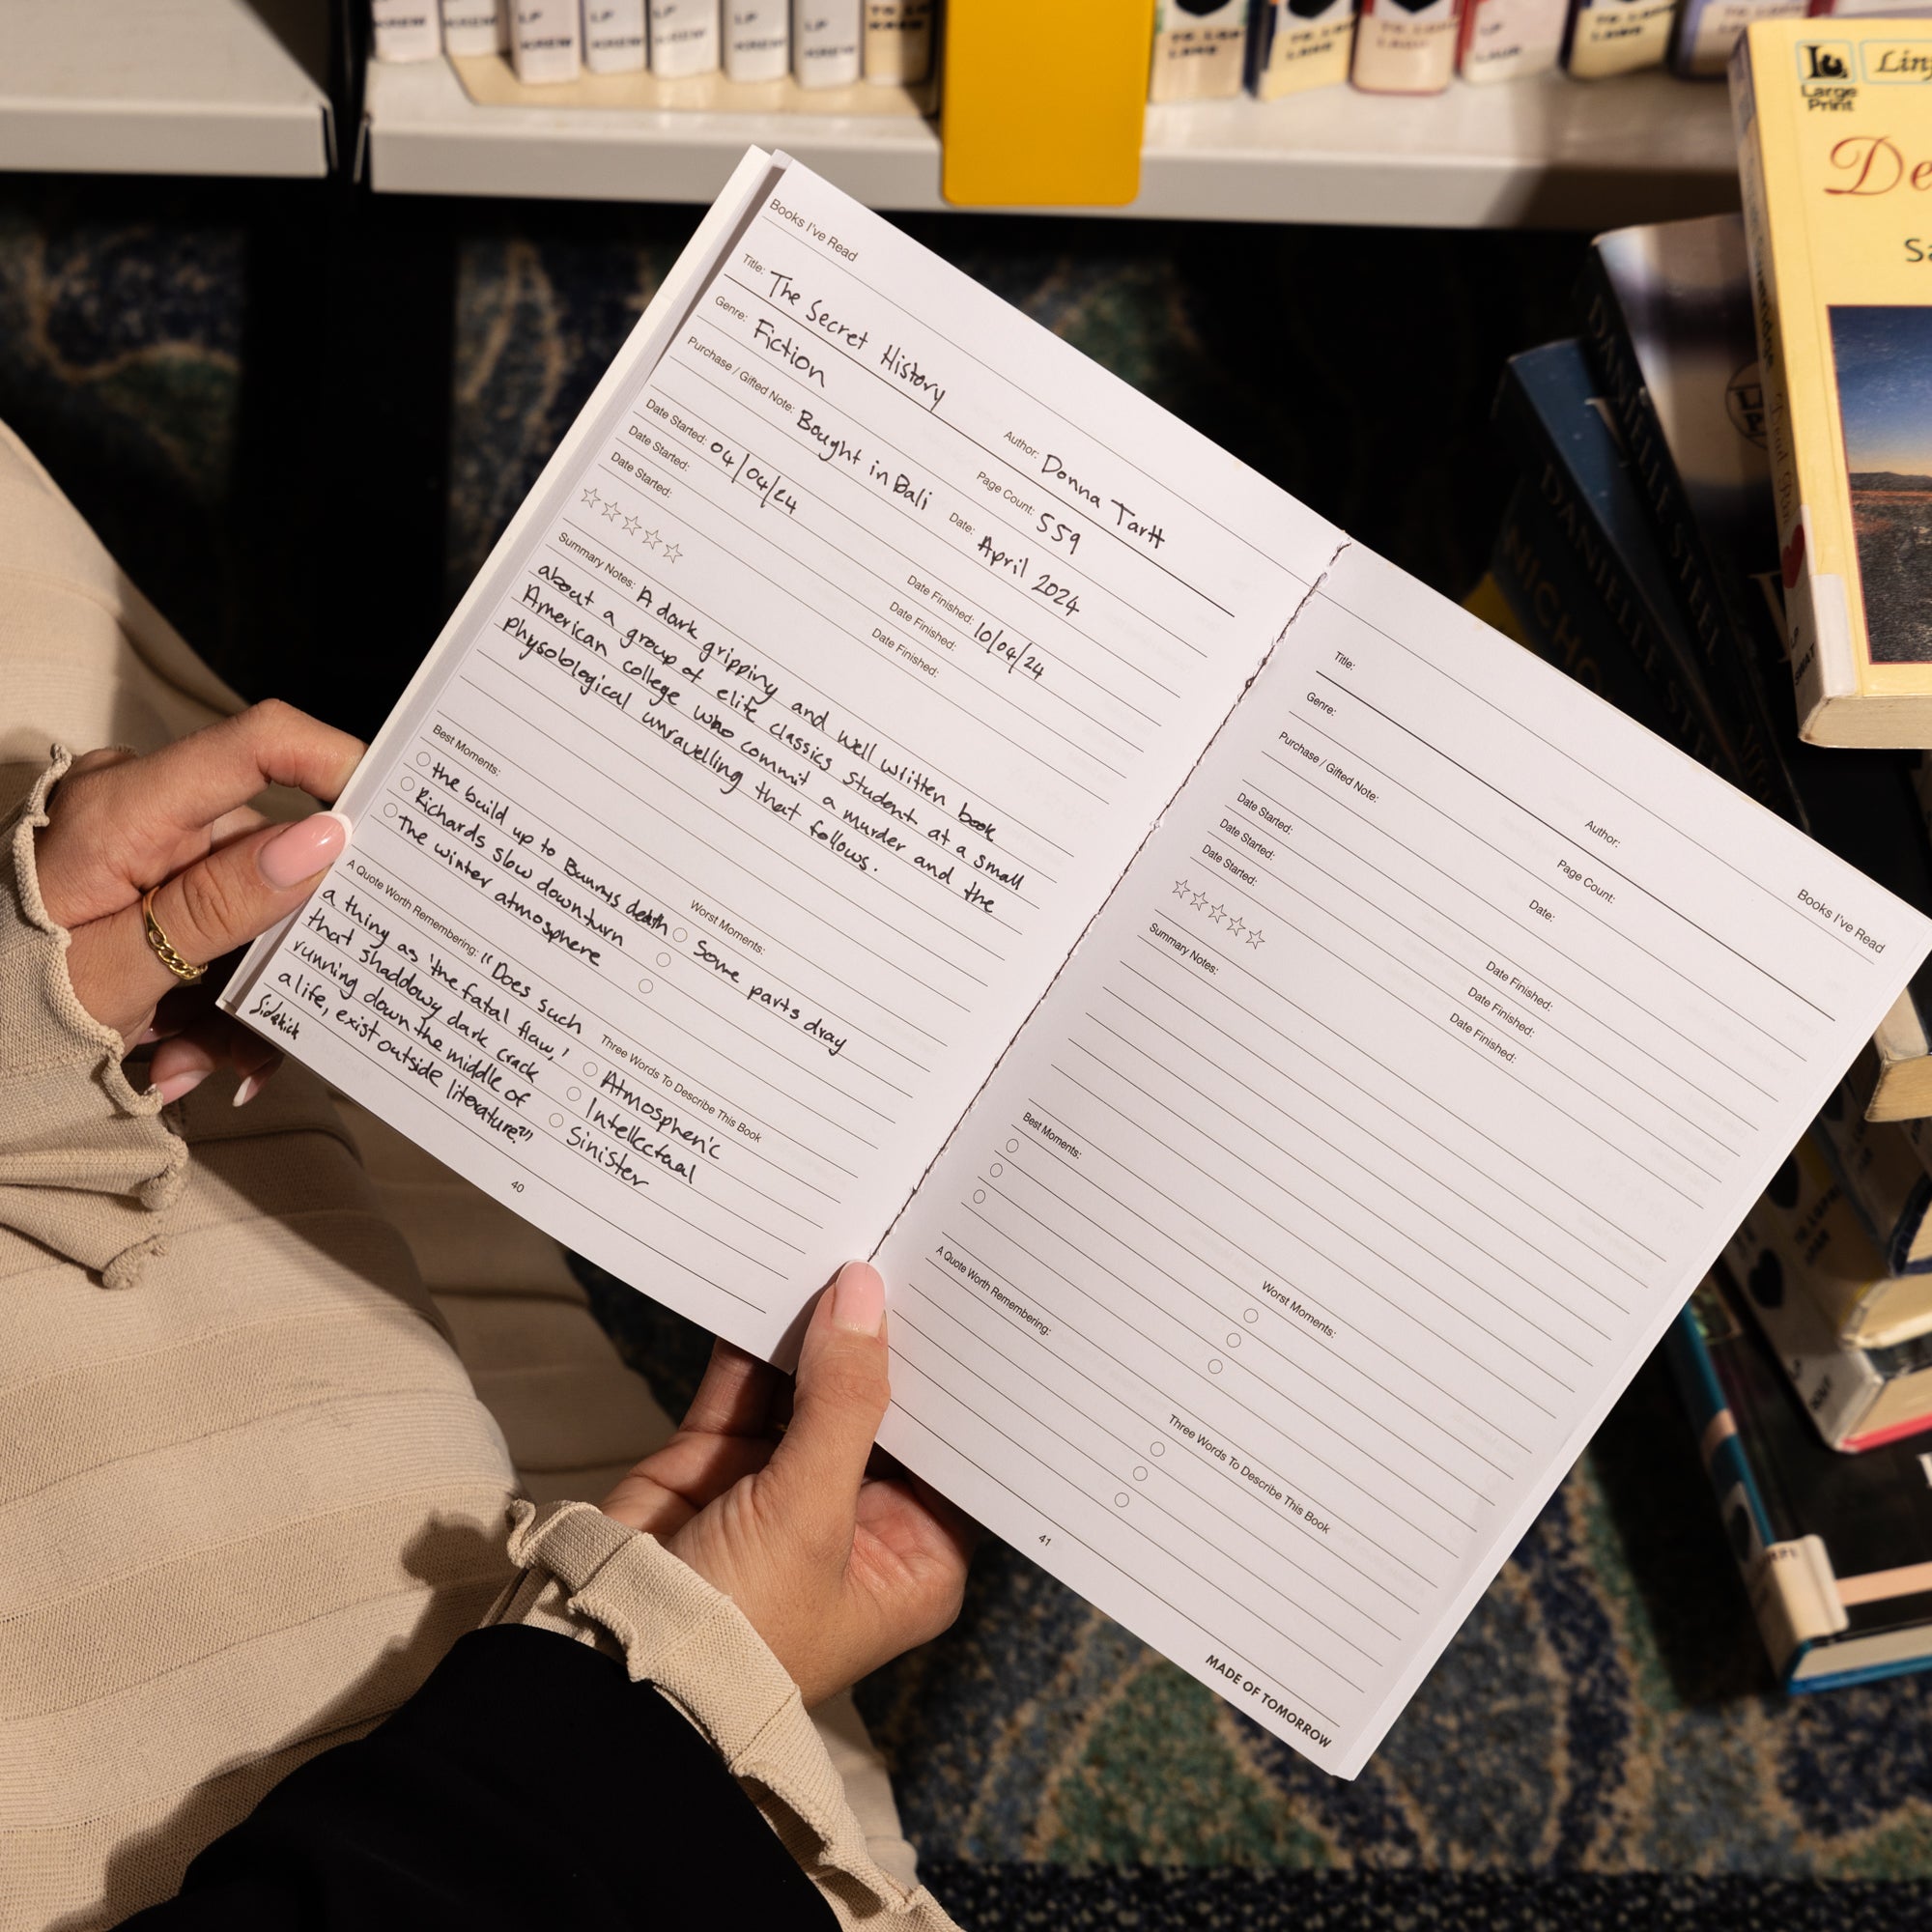 LP
KREW
LP
KREW
LP
KREW
LP
KREW
LP
KREW
LP
LAUR
Large
Print
De
Sa
DANIELLE STEEL
DANIELLE
NICHO
Books I've Read
Title: The Secret History
Author: Donna Tartt
Genre: Fiction
Page Count: 559
Purchase / Gifted Note: Bought in Bali
Date: April 2024
Date Started: 04/04/24
Date Finished: 10/04/24
Date Started:
Date Finished:
Date Started:
Date Finished:
Summary Notes: A dark gripping and well written book
about a group of elite classics student at a small
American college who commit a murder and the
physobological unravelling that follows.
Best Moments:
the build up to Bunnys death
Richards slow downturn
The winter atmosphere
Worst Moments:
Some parts dray
A Quote Worth Remembering: "Does such
a thing as 'the fatal flaw,'
that shaddowy dark crack
running down the middle of
a life, exist outside literature?"
Three Words To Describe This Book
Atmospheric
Intellectual
Sinister
40
Books I've Read
Title:
Author:
Genre:
Page Count:
Purchase / Gifted Note:
Date:
Date Started:
Date Finished:
Date Started:
Date Finished:
Date Started:
Date Finished:
Summary Notes:
Best Moments:
Worst Moments:
A Quote Worth Remembering:
Three Words To Describe This Book
41
MADE OF TOMORROW